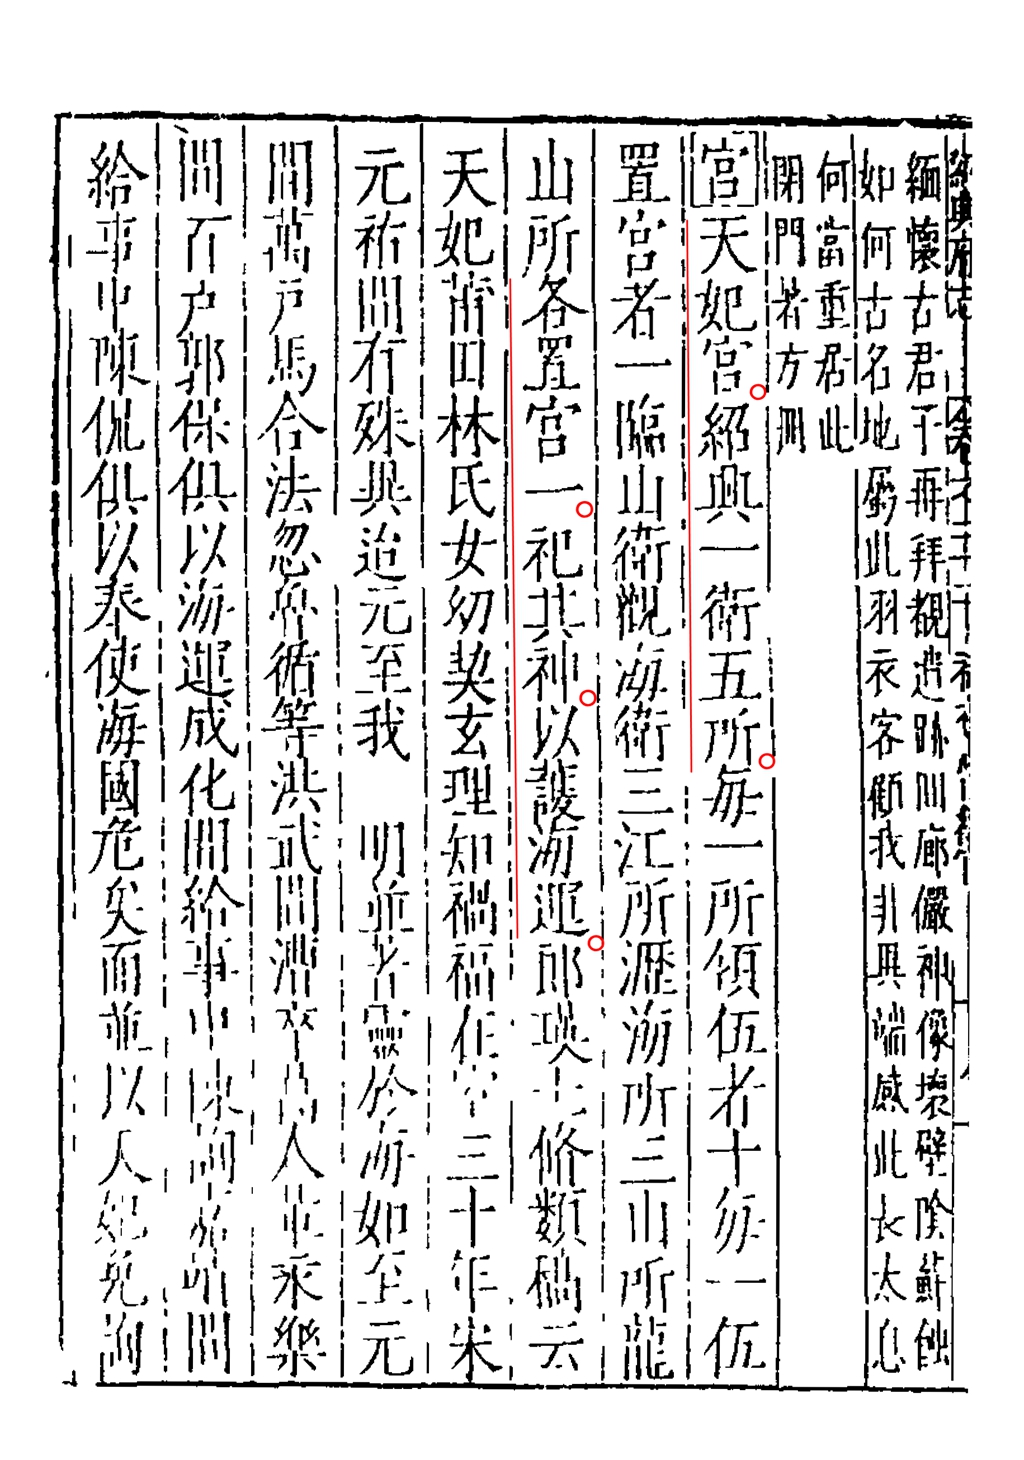 緬懷古君子再拜觀遺跡回廊儼神像壞壁陰蘚蝕
如何古名地屬此羽衣客顧我非異端感此長太息
何當重居此
閉門著方冊
宮天妃宮紹興一衛五所每一所領伍者十每一伍
置宮者一臨山衛觀海衛三江所瀝海所三山所龍
山所各置宮一祀其神以護海運郎瑛七脩類稿云
天妃莆田林氏女幼契玄理知禍福在室三十年宋
元祐間有殊異迨元至我 明並著靈於海如至元
間萬戶馬合法忽魯循等洪武間漕卒萬人輩來樂
間百戶郭保俱以海運成化間給事中陳詢嘉靖間
給事中陳侃俱以奉使海國危矣而並以天妃免詢